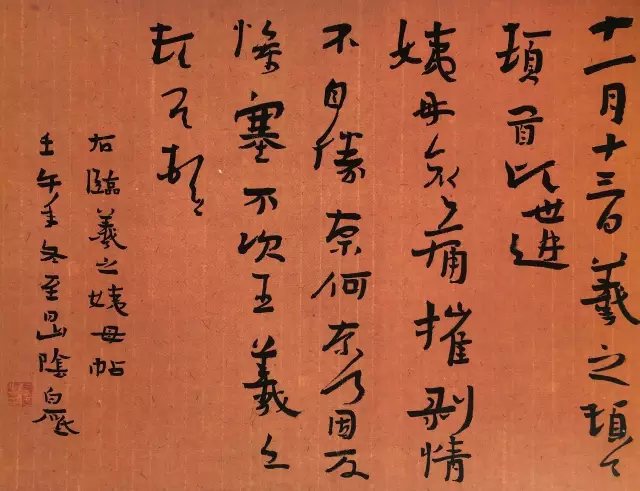 十一月十三日羲之頓〻
頓首頃遘
姨母哀〻痛摧剝情
不自勝奈何奈何因反
慘塞不次王羲之
頓首頓〻
右臨羲之姨母帖
壬午年冬至山陰白砥